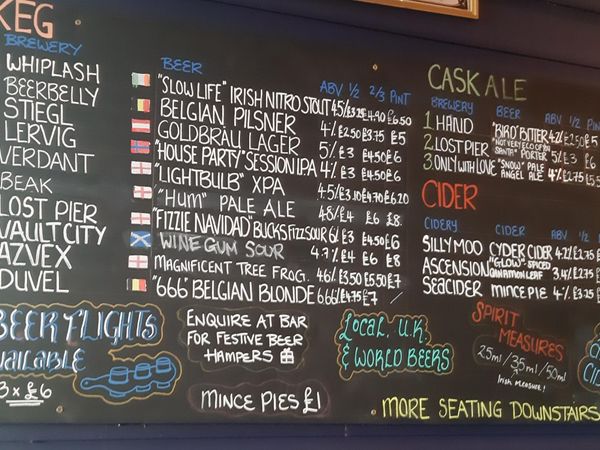 KEG
BREWERY BEER ABV 1/2 2/3 PINT
WHIPLASH "SLOW LIFE" IRISH NITRO STOUT 4.5/ £3.25 £4.90 £6.50
BEERBELLY BELGIAN PILSNER 4% £2.50 £3.75 £5
STIEGL GOLDBRÄU LAGER 5% £3 £4.50 £6
LERVIG "HOUSE PARTY" SESSION IPA 4% £3 £4.50 £6
VERDANT "LIGHTBULB" XPA 4.5% £3.10 £4.70 £6.20
BEAK "HUM" PALE ALE 4.8% £4 £6 £8
LOST PIER "FIZZIE NAVIDAD" BUCKS FIZZ SOUR 6% £3 £4.50 £6
VAULT CITY WINE GUM SOUR 4.7% £4 £6 £8
AZVEX MAGNIFICENT TREE FROG. 4.6% £3.50 £5.50 £7
DUVEL "666" BELGIAN BLONDE 6.66% £4.75 £7 /
CASK ALE
BREWERY BEER ABV 1/2 PI
1 HAND "BIRD" BITTER 4.2% £2.50 £5
2 LOST PIER "NOT VERY ECO OF YA SANTA" PORTER 5% £3 £6
3 ONLY WITH LOVE "SNOW" ANGEL PALE ALE 4% £2.75 £5.5
CIDER
CIDERY CIDER ABV 1/2
SILLY MOO CYDER CIDER 4.2% £2.75
ASCENSION "GLOW" - SPICED CINNAMON LEAF 3.4% £2.75
SEACIDER MINCE PIE 4% £3.25
BEER FLIGHTS
AVAILABLE
3 x £6
ENQUIRE AT BAR
FOR FESTIVE BEER
HAMPERS
MINCE PIES £1
LOCAL, U.K.
& WORLD BEERS
SPIRIT
MEASURES
25ml/35ml/50ml
IRISH MEASURE!
MORE SEATING DOWNSTAIRS